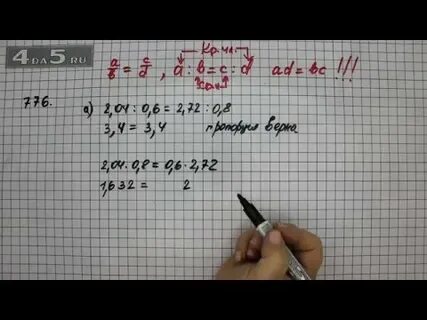 4DA5.RU
Кр.чл.
a/b = c/d , a : b = c : d ad = bc !!!
776. а) 2,04 : 0,6 = 2,72 : 0,8
3,4 = 3,4 пропорция верна
2,04 · 0,8 = 0,6 · 2,72
1,632 = 2